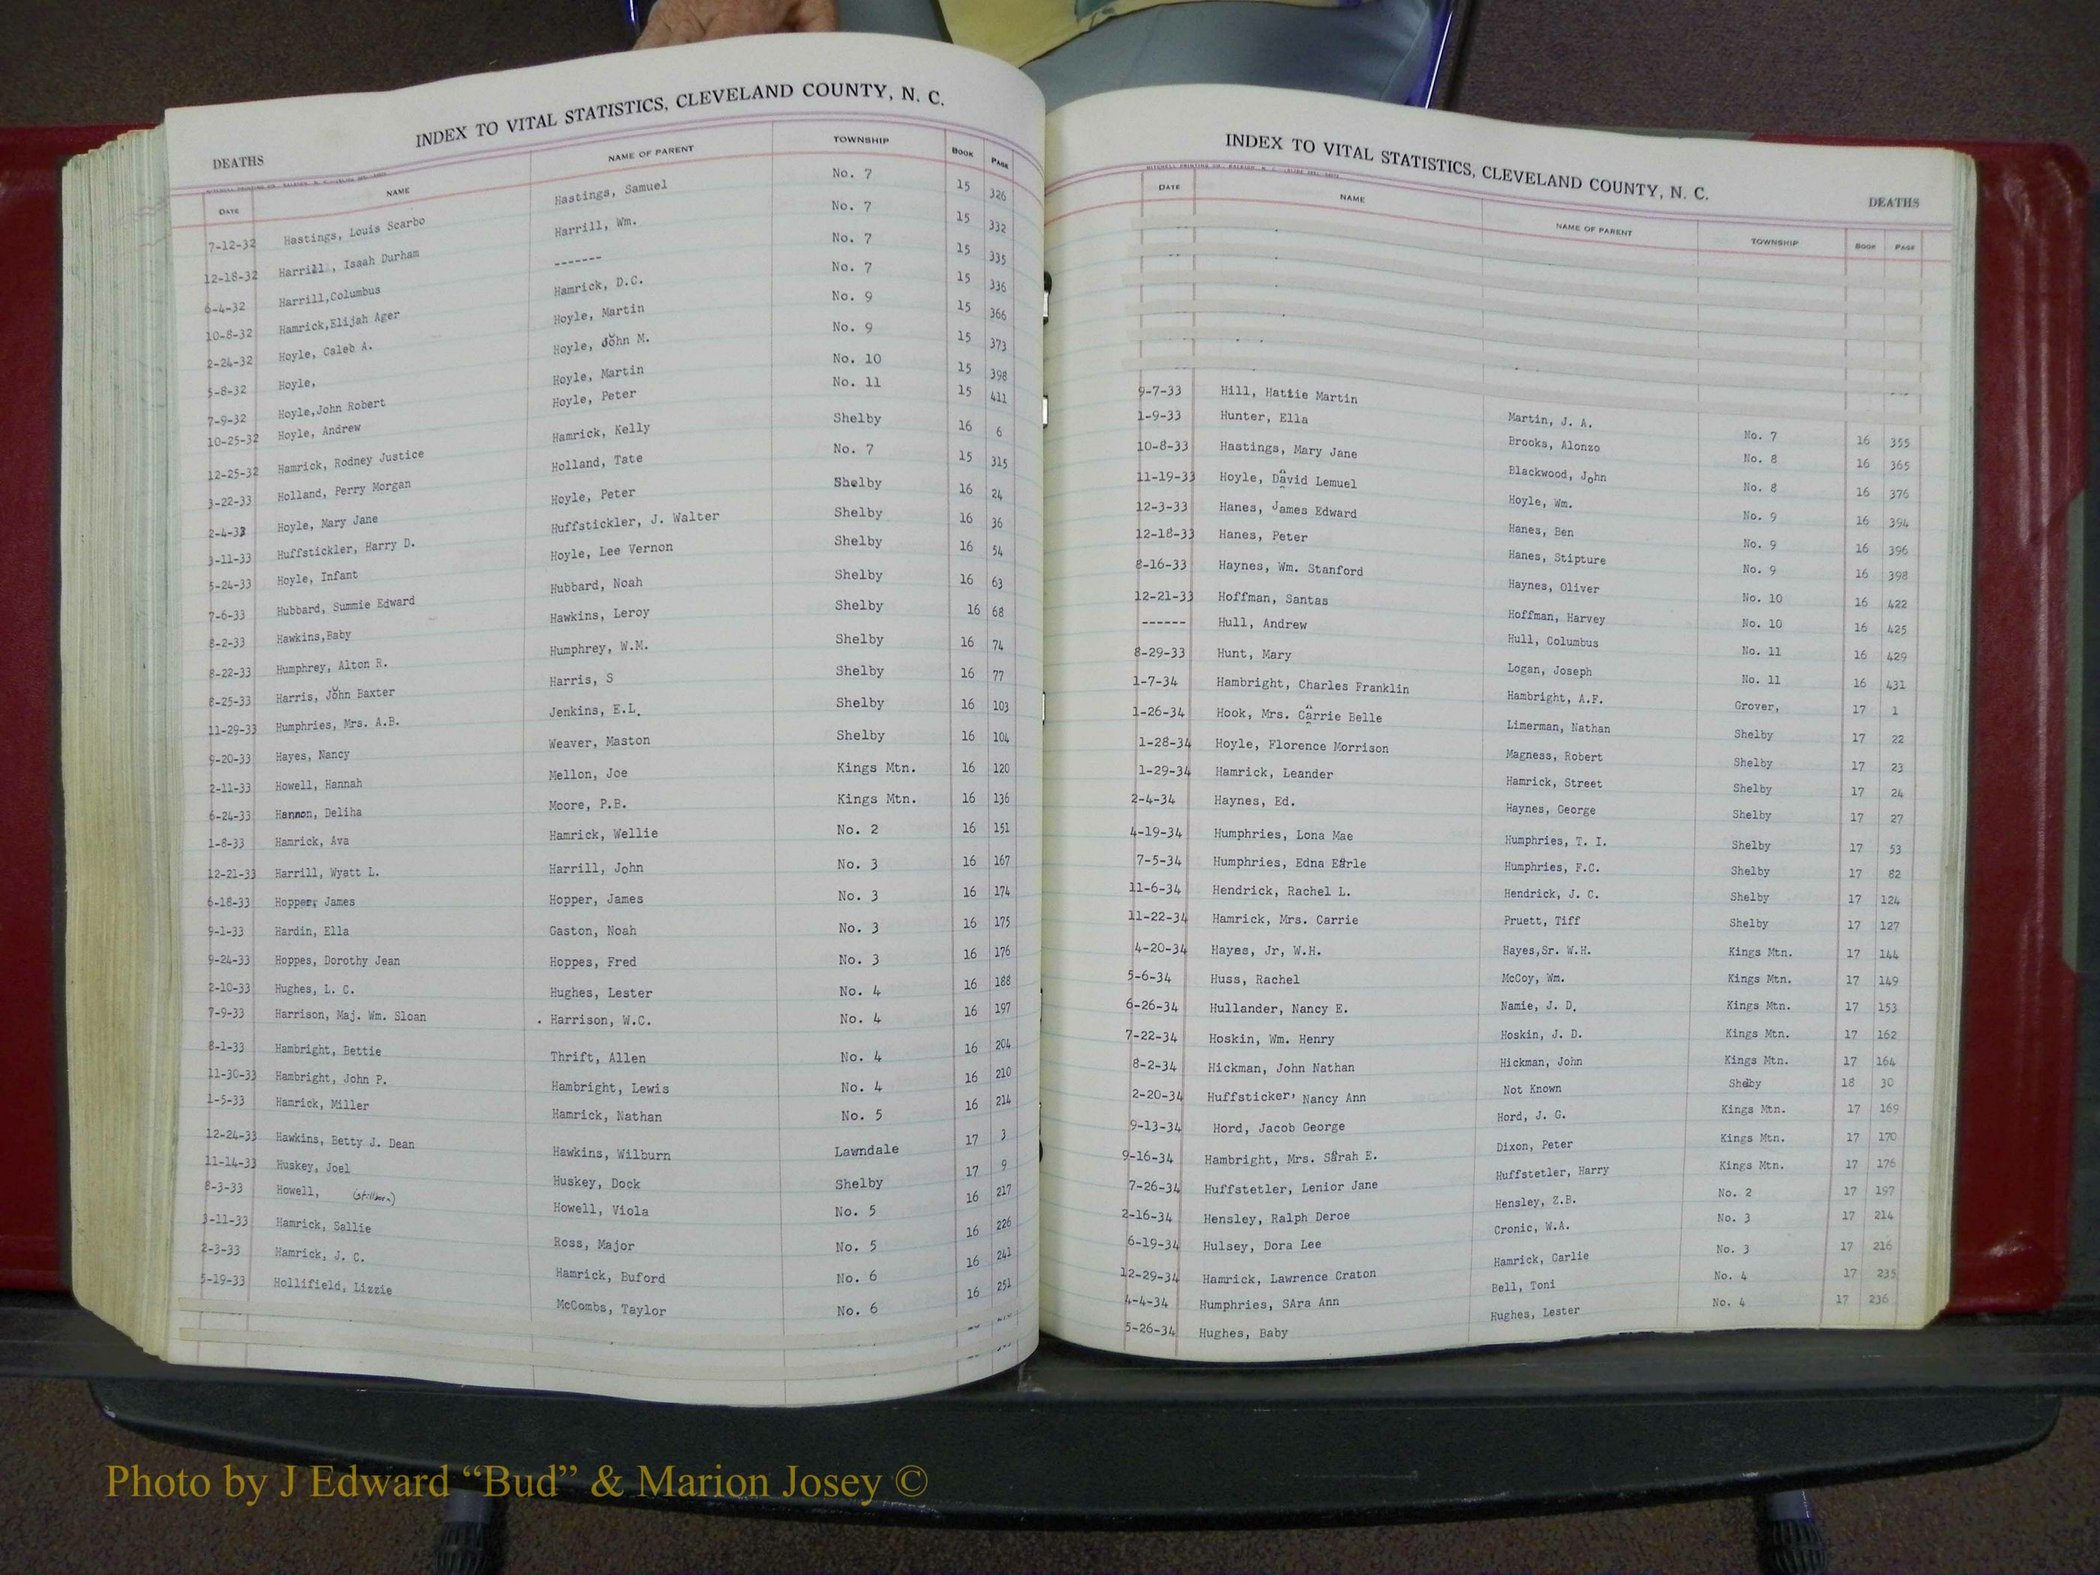 INDEX TO VITAL STATISTICS, CLEVELAND COUNTY, N. C.
DEATHS
DATE NAME NAME OF PARENT TOWNSHIP BOOK PAGE
7-12-32 Hastings, Louis Scarbo Hastings, Samuel No. 7 15 326
12-18-32 Harrill, Isaah Durham Harrill, Wm. No. 7 15 332
6-4-32 Harrill,Columbus ------- No. 7 15 335
10-8-32 Hamrick,Elijah Ager Hamrick, D.C. No. 7 15 336
2-24-32 Hoyle, Caleb A. Hoyle, Martin No. 9 15 366
5-8-32 Hoyle, Hoyle, John M. No. 9 15 373
7-9-32 Hoyle,John Robert Hoyle, Martin No. 10 15 398
10-25-32 Hoyle, Andrew Hoyle, Peter No. 11 15 411
12-25-32 Hamrick, Rodney Justice Hamrick, Kelly Shelby 16 6
3-22-33 Holland, Perry Morgan Holland, Tate No. 7 15 315
2-4-33 Hoyle, Mary Jane Hoyle, Peter Shelby 16 24
3-11-33 Huffstickler, Harry D. Huffstickler, J. Walter Shelby 16 36
5-24-33 Hoyle, Infant Hoyle, Lee Vernon Shelby 16 54
7-6-33 Hubbard, Summie Edward Hubbard, Noah Shelby 16 63
8-2-33 Hawkins,Baby Hawkins, Leroy Shelby 16 68
8-22-33 Humphrey, Alton R. Humphrey, W.M. Shelby 16 74
8-25-33 Harris, John Baxter Harris, S Shelby 16 77
11-29-33 Humphries, Mrs. A.B. Jenkins, E.L. Shelby 16 103
9-20-33 Hayes, Nancy Weaver, Maston Shelby 16 104
2-11-33 Howell, Hannah Mellon, Joe Kings Mtn. 16 120
6-24-33 Hannon, Deliha Moore, P.B. Kings Mtn. 16 136
1-8-33 Hamrick, Ava Hamrick, Wellie No. 2 16 151
12-21-33 Harrill, Wyatt L. Harrill, John No. 3 16 167
6-18-33 Hopper, James Hopper, James No. 3 16 174
9-1-33 Hardin, Ella Gaston, Noah No. 3 16 175
9-24-33 Hoppes, Dorothy Jean Hoppes, Fred No. 3 16 176
2-10-33 Hughes, L. C. Hughes, Lester No. 4 16 188
7-9-33 Harrison, Maj. Wm. Sloan . Harrison, W.C. No. 4 16 197
8-1-33 Hambright, Bettie Thrift, Allen No. 4 16 204
11-30-33 Hambright, John P. Hambright, Lewis No. 4 16 210
1-5-33 Hamrick, Miller Hamrick, Nathan No. 5 16 214
12-24-33 Hawkins, Betty J. Dean Hawkins, Wilburn Lawndale 17 3
11-14-33 Huskey, Joel Huskey, Dock Shelby 17 9
8-3-33 Howell, (stillborn) Howell, Viola No. 5 16 217
3-11-33 Hamrick, Sallie Ross, Major No. 5 16 226
2-3-33 Hamrick, J. C. Hamrick, Buford No. 6 16 241
5-19-33 Hollifield, Lizzie McCombs, Taylor No. 6 16 251
INDEX TO VITAL STATISTICS, CLEVELAND COUNTY, N. C.
DEATHS
DATE NAME NAME OF PARENT TOWNSHIP BOOK PAGE
9-7-33 Hill, Hattie Martin Martin, J. A. No. 7 16 355
1-9-33 Hunter, Ella Brooks, Alonzo No. 8 16 365
10-8-33 Hastings, Mary Jane Blackwood, John No. 8 16 376
11-19-33 Hoyle, David Lemuel Hoyle, Wm. No. 9 16 394
12-3-33 Hanes, James Edward Hanes, Ben No. 9 16 396
12-18-33 Hanes, Peter Hanes, Stipture No. 9 16 398
8-16-33 Haynes, Wm. Stanford Haynes, Oliver No. 10 16 422
12-21-33 Hoffman, Santas Hoffman, Harvey No. 10 16 425
------ Hull, Andrew Hull, Columbus No. 11 16 429
8-29-33 Hunt, Mary Logan, Joseph No. 11 16 431
1-7-34 Hambright, Charles Franklin Hambright, A.F. Grover, 17 1
1-26-34 Hook, Mrs. Carrie Belle Limerman, Nathan Shelby 17 22
1-28-34 Hoyle, Florence Morrison Magness, Robert Shelby 17 23
1-29-34 Hamrick, Leander Hamrick, Street Shelby 17 24
2-4-34 Haynes, Ed. Haynes, George Shelby 17 27
4-19-34 Humphries, Lona Mae Humphries, T. I. Shelby 17 53
7-5-34 Humphries, Edna Earle Humphries, F.C. Shelby 17 82
11-6-34 Hendrick, Rachel L. Hendrick, J. C. Shelby 17 124
11-22-34 Hamrick, Mrs. Carrie Pruett, Tiff Shelby 17 127
4-20-34 Hayes, Jr, W.H. Hayes,Sr. W.H. Kings Mtn. 17 144
5-6-34 Huss, Rachel McCoy, Wm. Kings Mtn. 17 149
6-26-34 Hullander, Nancy E. Namie, J. D. Kings Mtn. 17 153
7-22-34 Hoskin, Wm. Henry Hoskin, J. D. Kings Mtn. 17 162
8-2-34 Hickman, John Nathan Hickman, John Kings Mtn. 17 164
2-20-34 Huffsticker, Nancy Ann Not Known Shelby 18 30
9-13-34 Hord, Jacob George Hord, J. G. Kings Mtn. 17 169
9-16-34 Hambright, Mrs. Sarah E. Dixon, Peter Kings Mtn. 17 170
7-26-34 Huffstetler, Lenior Jane Huffstetler, Harry Kings Mtn. 17 176
2-16-34 Hensley, Ralph Deroe Hensley, Z.B. No. 2 17 197
6-19-34 Hulsey, Dora Lee Cronic, W.A. No. 3 17 214
12-29-34 Hamrick, Lawrence Craton Hamrick, Garlie No. 3 17 216
4-4-34 Humphries, SAra Ann Bell, Toni No. 4 17 235
5-26-34 Hughes, Baby Hughes, Lester No. 4 17 236
Photo by J Edward “Bud” & Marion Josey ©